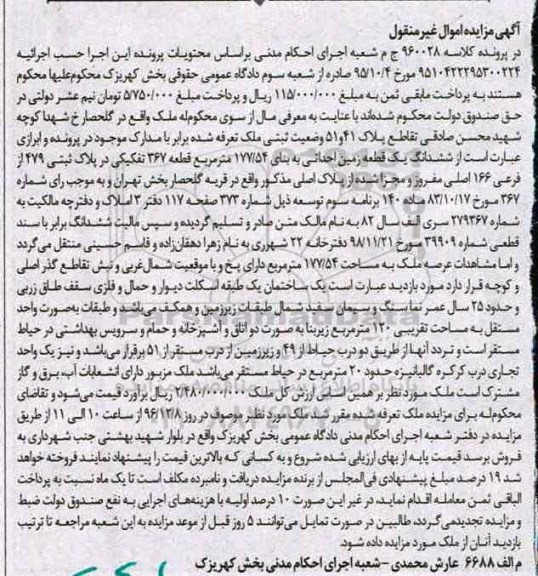 آگهی مزایده اموال غیر منقول
در پرونده کلاسه ۹۶۰۰۲۸ ج م شعبه اجرای احکام مدنی براساس محتویات پرونده این اجرا حسب اجرائیه
۹۵۱۰۴۲۲۲۹۵۳۰۰۲۲۴ مورخ ۹۵/۱۰/۴ صادره از شعبه سوم دادگاه عمومی حقوقی بخش کهریزک محکوم‌علیها محکوم
هستند به پرداخت مابقی ثمن به مبلغ ۱۱۵/۰۰۰/۰۰۰ ریال و پرداخت مبلغ ۵/۷۵۰/۰۰۰ تومان نیم عشر دولتی در
حق صندوق دولت محکوم شده‌اند با عنایت به معرفی مال از سوی محکوم‌له ملک واقع در گلحصار خ شهدا کوچه
شهید محسن صادقی تقاطع پلاک ۴۱ و ۵۱ وضعیت ثبتی ملک تعرفه شده برابر با مدارک موجود در پرونده و ابرازی
عبارت است از ششدانگ یک قطعه زمین احداثی به بنای ۱۷۷/۵۴ مترمربع قطعه ۳۶۷ تفکیکی در پلاک ثبتی ۴۷۹ از
فرعی ۱۶۶ اصلی مفروز و مجزا شده از پلاک اصلی مذکور واقع در قریه گلحصار بخش تهران و به موجب رای شماره
۳۶۷ مورخ ۸۳/۱۰/۱۷ ماده ۱۴۰ برنامه سوم توسعه ذیل شماره ۳۷۳ صفحه ۱۱۷ دفتر ۳ املاک و دفترچه مالکیت به
شماره ۲۷۹۳۶۷ سری الف سال ۸۲ به نام مالک متن صادر و تسلیم گردیده و سپس مالیت ششدانگ برابر با سند
قطعی شماره ۳۹۹۰۹ مورخ ۹۸/۱۱/۲۱ دفترخانه ۲۲ شهرری به نام زهرا دهقان‌زاده و قاسم حسینی منتقل می‌گردد
و اما مشاهدات عرصه ملک به مساحت ۱۷۷/۵۴ مترمربع دارای پخ و با موقعیت شمال‌غربی و نبش تقاطع گذر اصلی
و کوچه قرار دارد مورد بازدید عبارت است یک ساختمان یک طبقه اسکلت دیوار و حمال و فلزی سقف طاق زربی
و حدود ۲۵ سال عمر نما سنگ و سیمان سفید شمال طبقات زیرزمین و همکف می‌باشد و طبقات به‌صورت واحد
مستقل به مساحت تقریبی ۱۲۰ مترمربع زیربنا به صورت دو اتاق و آشپزخانه و حمام و سرویس بهداشتی در حیاط
مستقر است و تردد آنها از طریق دو درب حیاط از ۴۹ و زیرزمین از درب مستقر از ۵۱ برقرار می‌باشد و نیز یک واحد
تجاری درب کرکره گالبانیزه حدود ۲۰ مترمربع در حیاط مستقر می‌باشد ملک مزبور دارای انشعابات آب، برق و گاز
مشترک است ملک مورد نظر بر همین اساس ارزش کل ملک ۲/۴۸۰/۰۰۰/۰۰۰ ریال برآورد قیمت می‌شود و تقاضای
محکوم‌له برای مزایده ملک تعرفه شده مقرر شد ملک مورد نظر موصوف در روز ۹۶/۱۲/۸ از ساعت ۱۰ الی ۱۱ از طریق
مزایده در دفتر شعبه اجرای احکام مدنی دادگاه عمومی بخش کهریزک واقع در بلوار شهید بهشتی جنب شهرداری به
فروش برسد قیمت پایه از بهای ارزیابی شده شروع و به کسانی که بالاترین قیمت را پیشنهاد نمایند فروخته خواهد
شد ۱۹ درصد مبلغ پیشنهادی فی‌المجلس از برنده مزایده دریافت و نامبرده مکلف است تا یک ماه نسبت به پرداخت
الباقی ثمن معامله اقدام نماید، در غیر این صورت ۱۰ درصد اولیه با هزینه‌های اجرایی به نفع صندوق دولت ضبط
و مزایده تجدید می‌گردد، طالبین در صورت تمایل می‌توانند ۵ روز قبل از موعد مزایده به این شعبه مراجعه تا ترتیب
بازدید آنان از ملک مورد مزایده داده شود.
م الف ۶۶۸۸ عارش محمدی - شعبه اجرای احکام مدنی بخش کهریزک